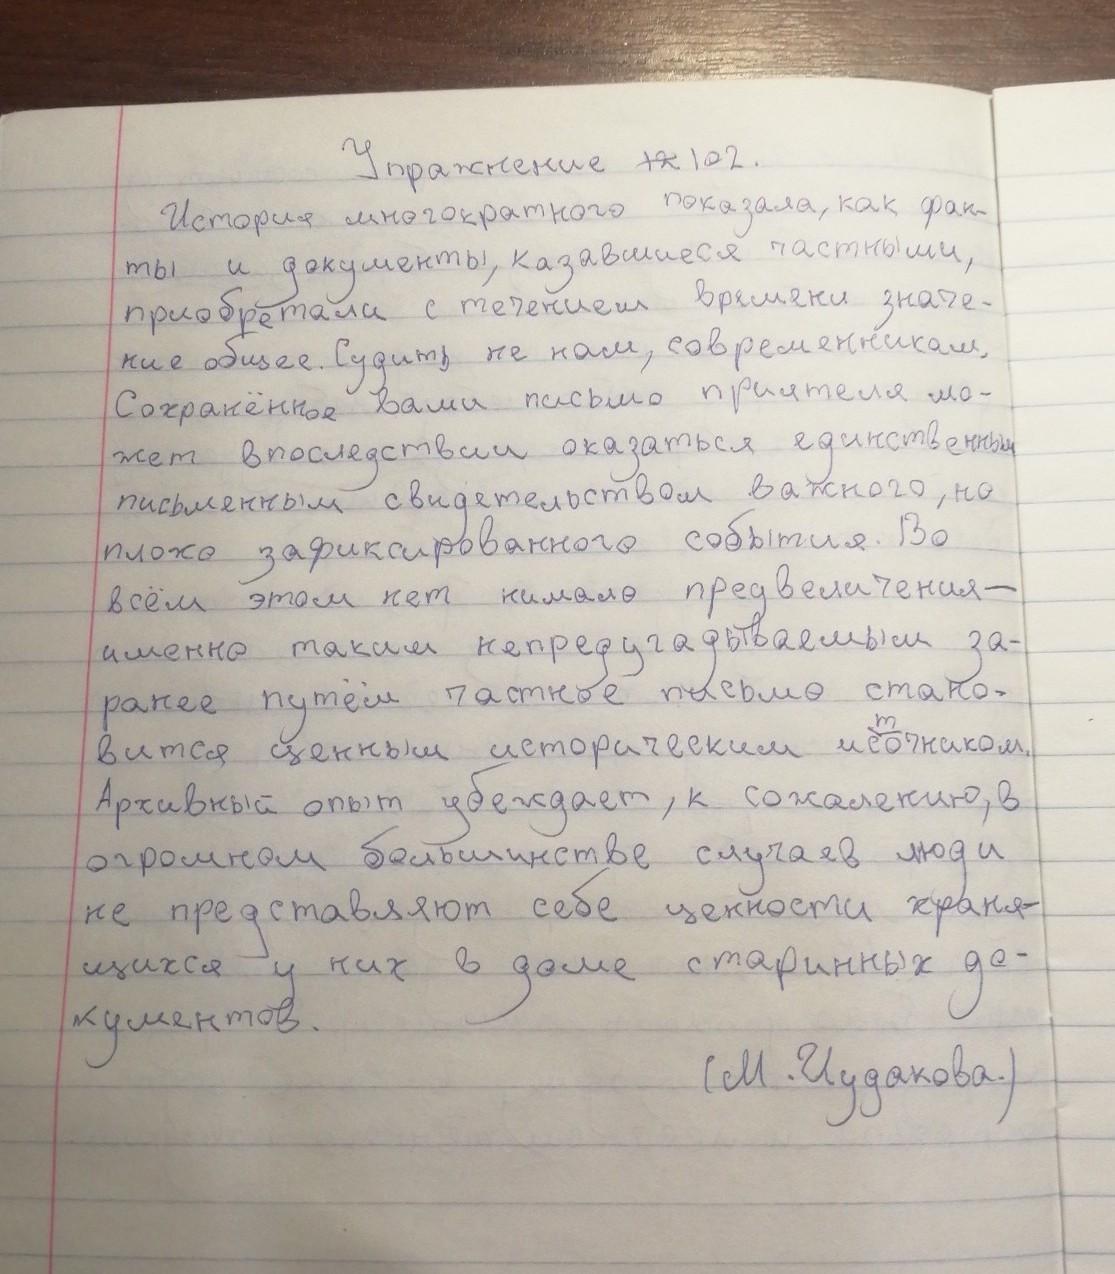 Упражнение 102.
История многократного показала, как фак-
ты и документы, казавшиеся частными,
приобретали с течением времени значе-
ние общее. Судить не нам, современникам.
Сохранённое вами письмо приятеля мо-
жет впоследствии оказаться единственным
письменным свидетельством важного, но
плохо зафиксированного события. Во
всём этом нет нимало предвеличения—
именно таким непредугадываемым за-
ранее путём частное письмо стано-
вится ценным историческим источником.
Архивный опыт убеждает, к сожалению, в
огромном большинстве случаев люди
не представляют себе ценности храня-
щихся у них в доме старинных до-
кументов.
(М. Чудакова.)